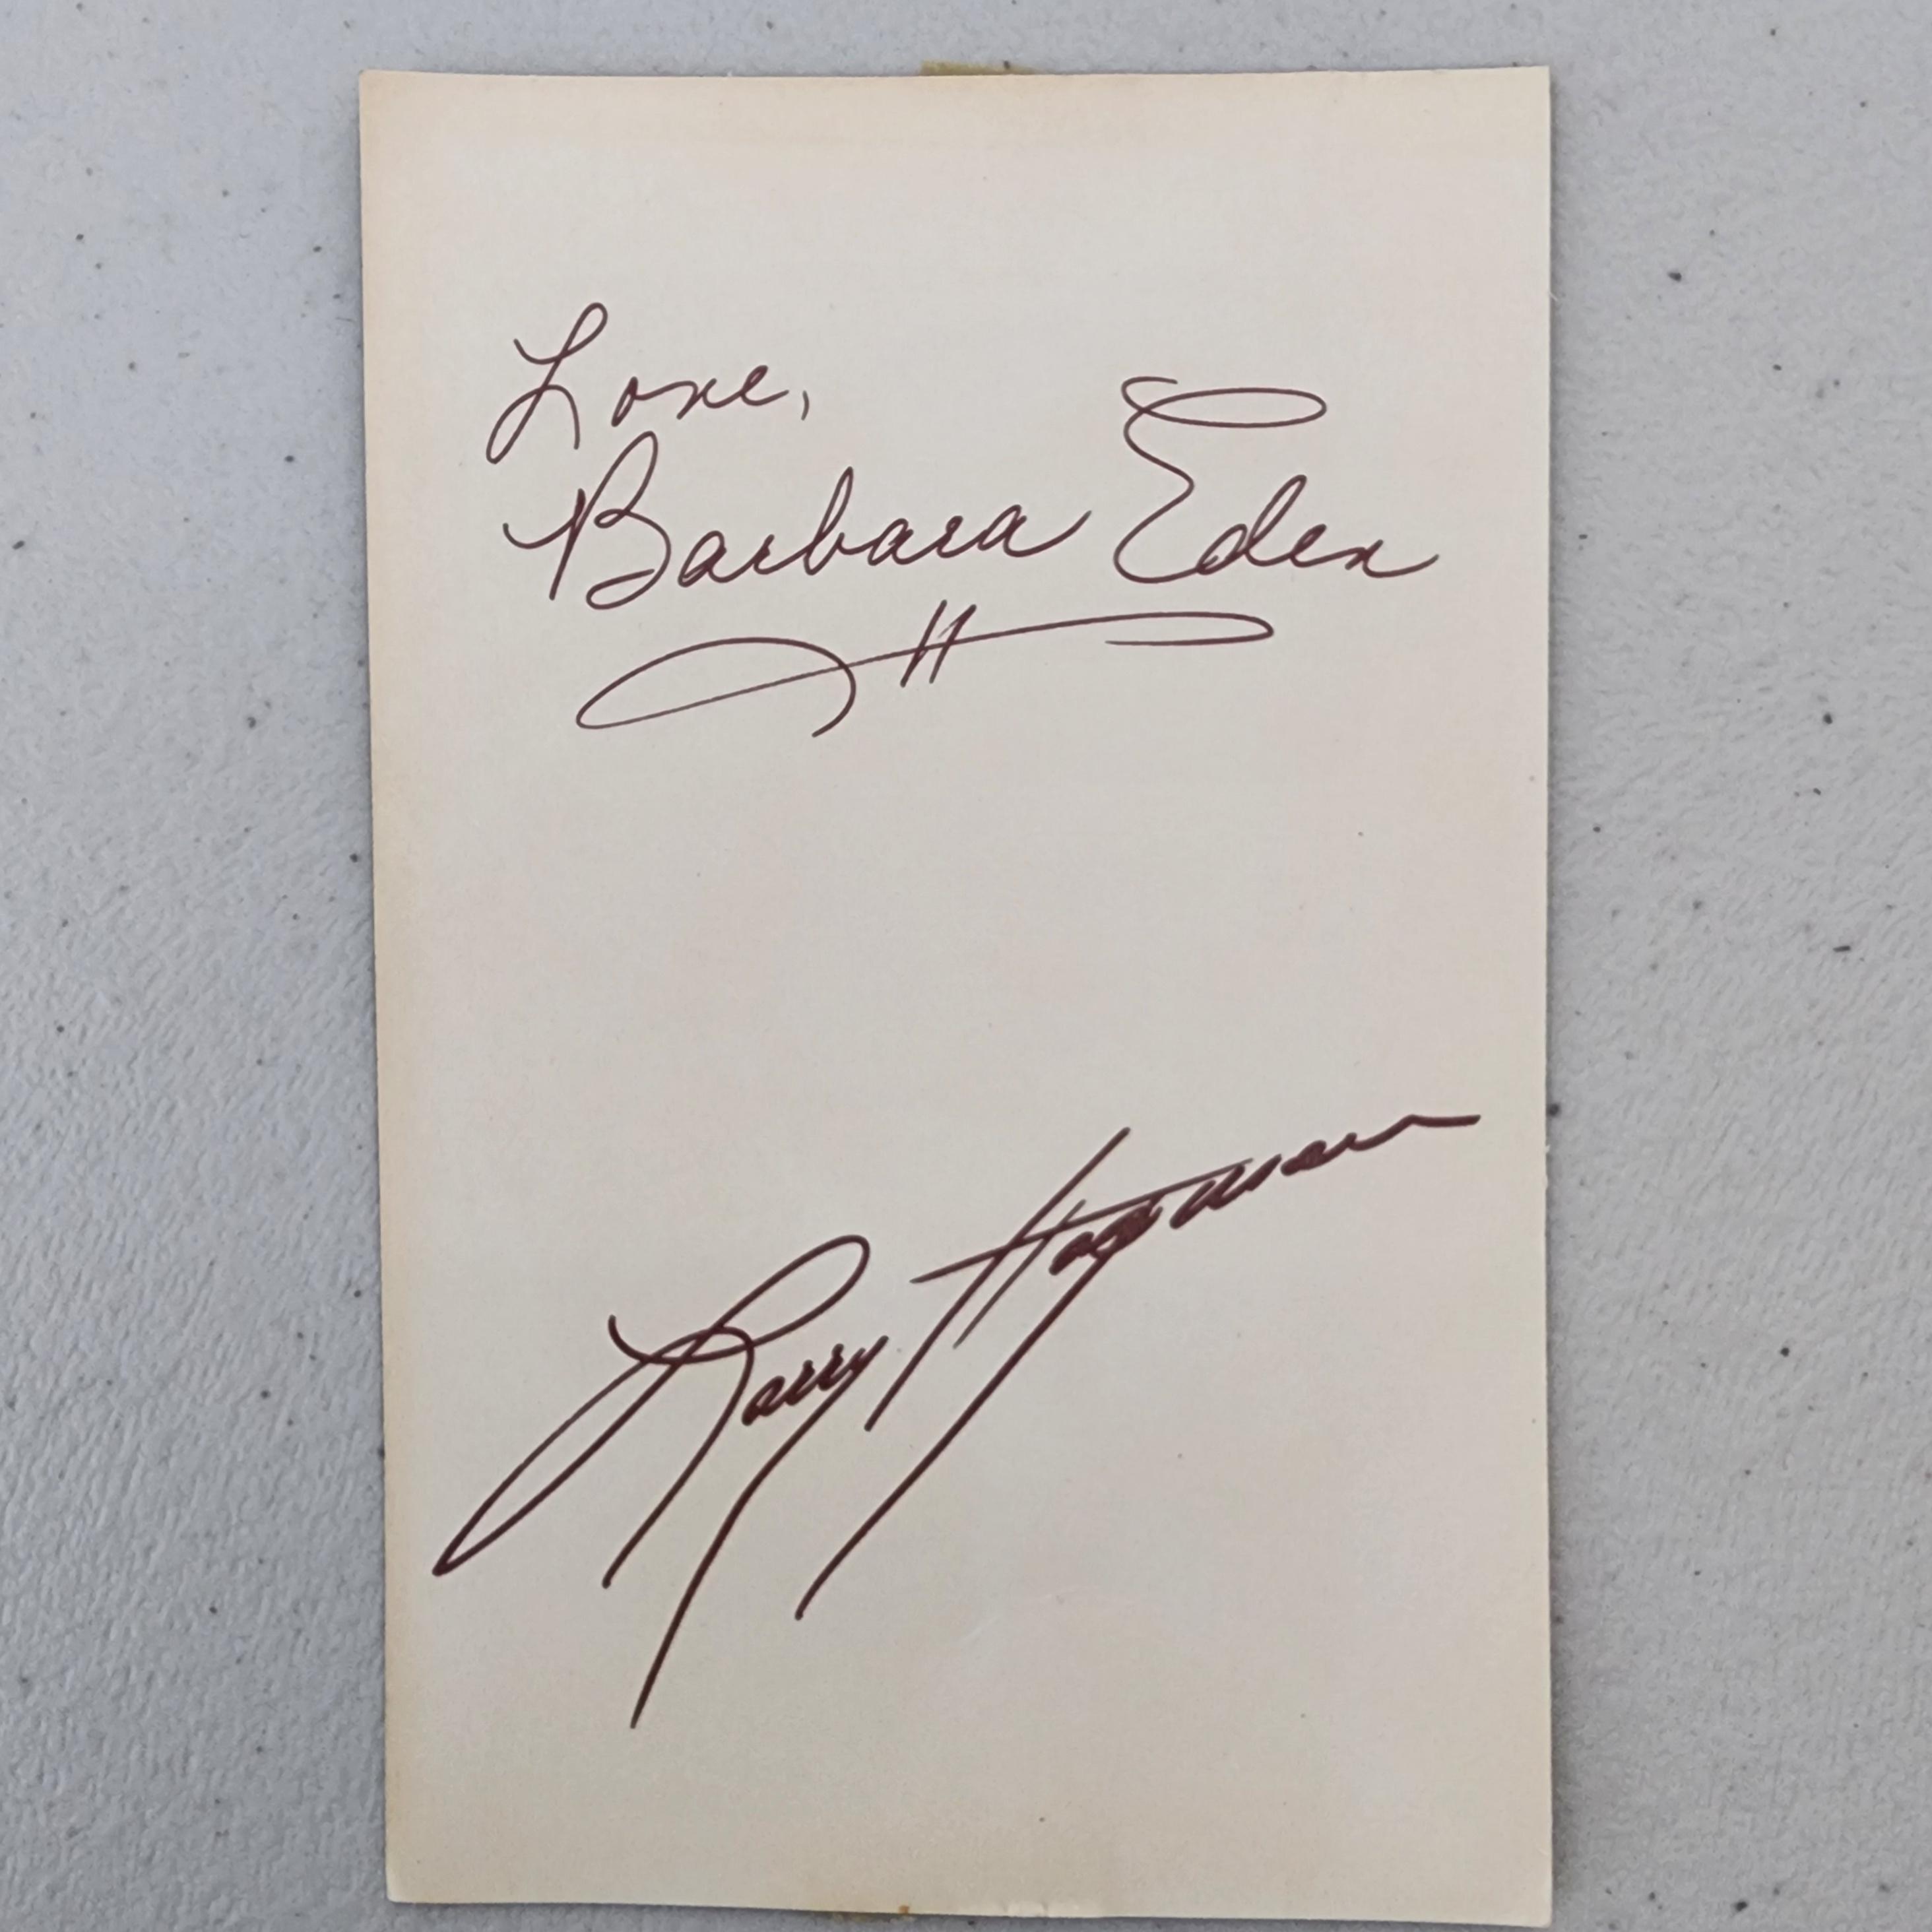 Love,
Barbara Eden
Larry Hagman